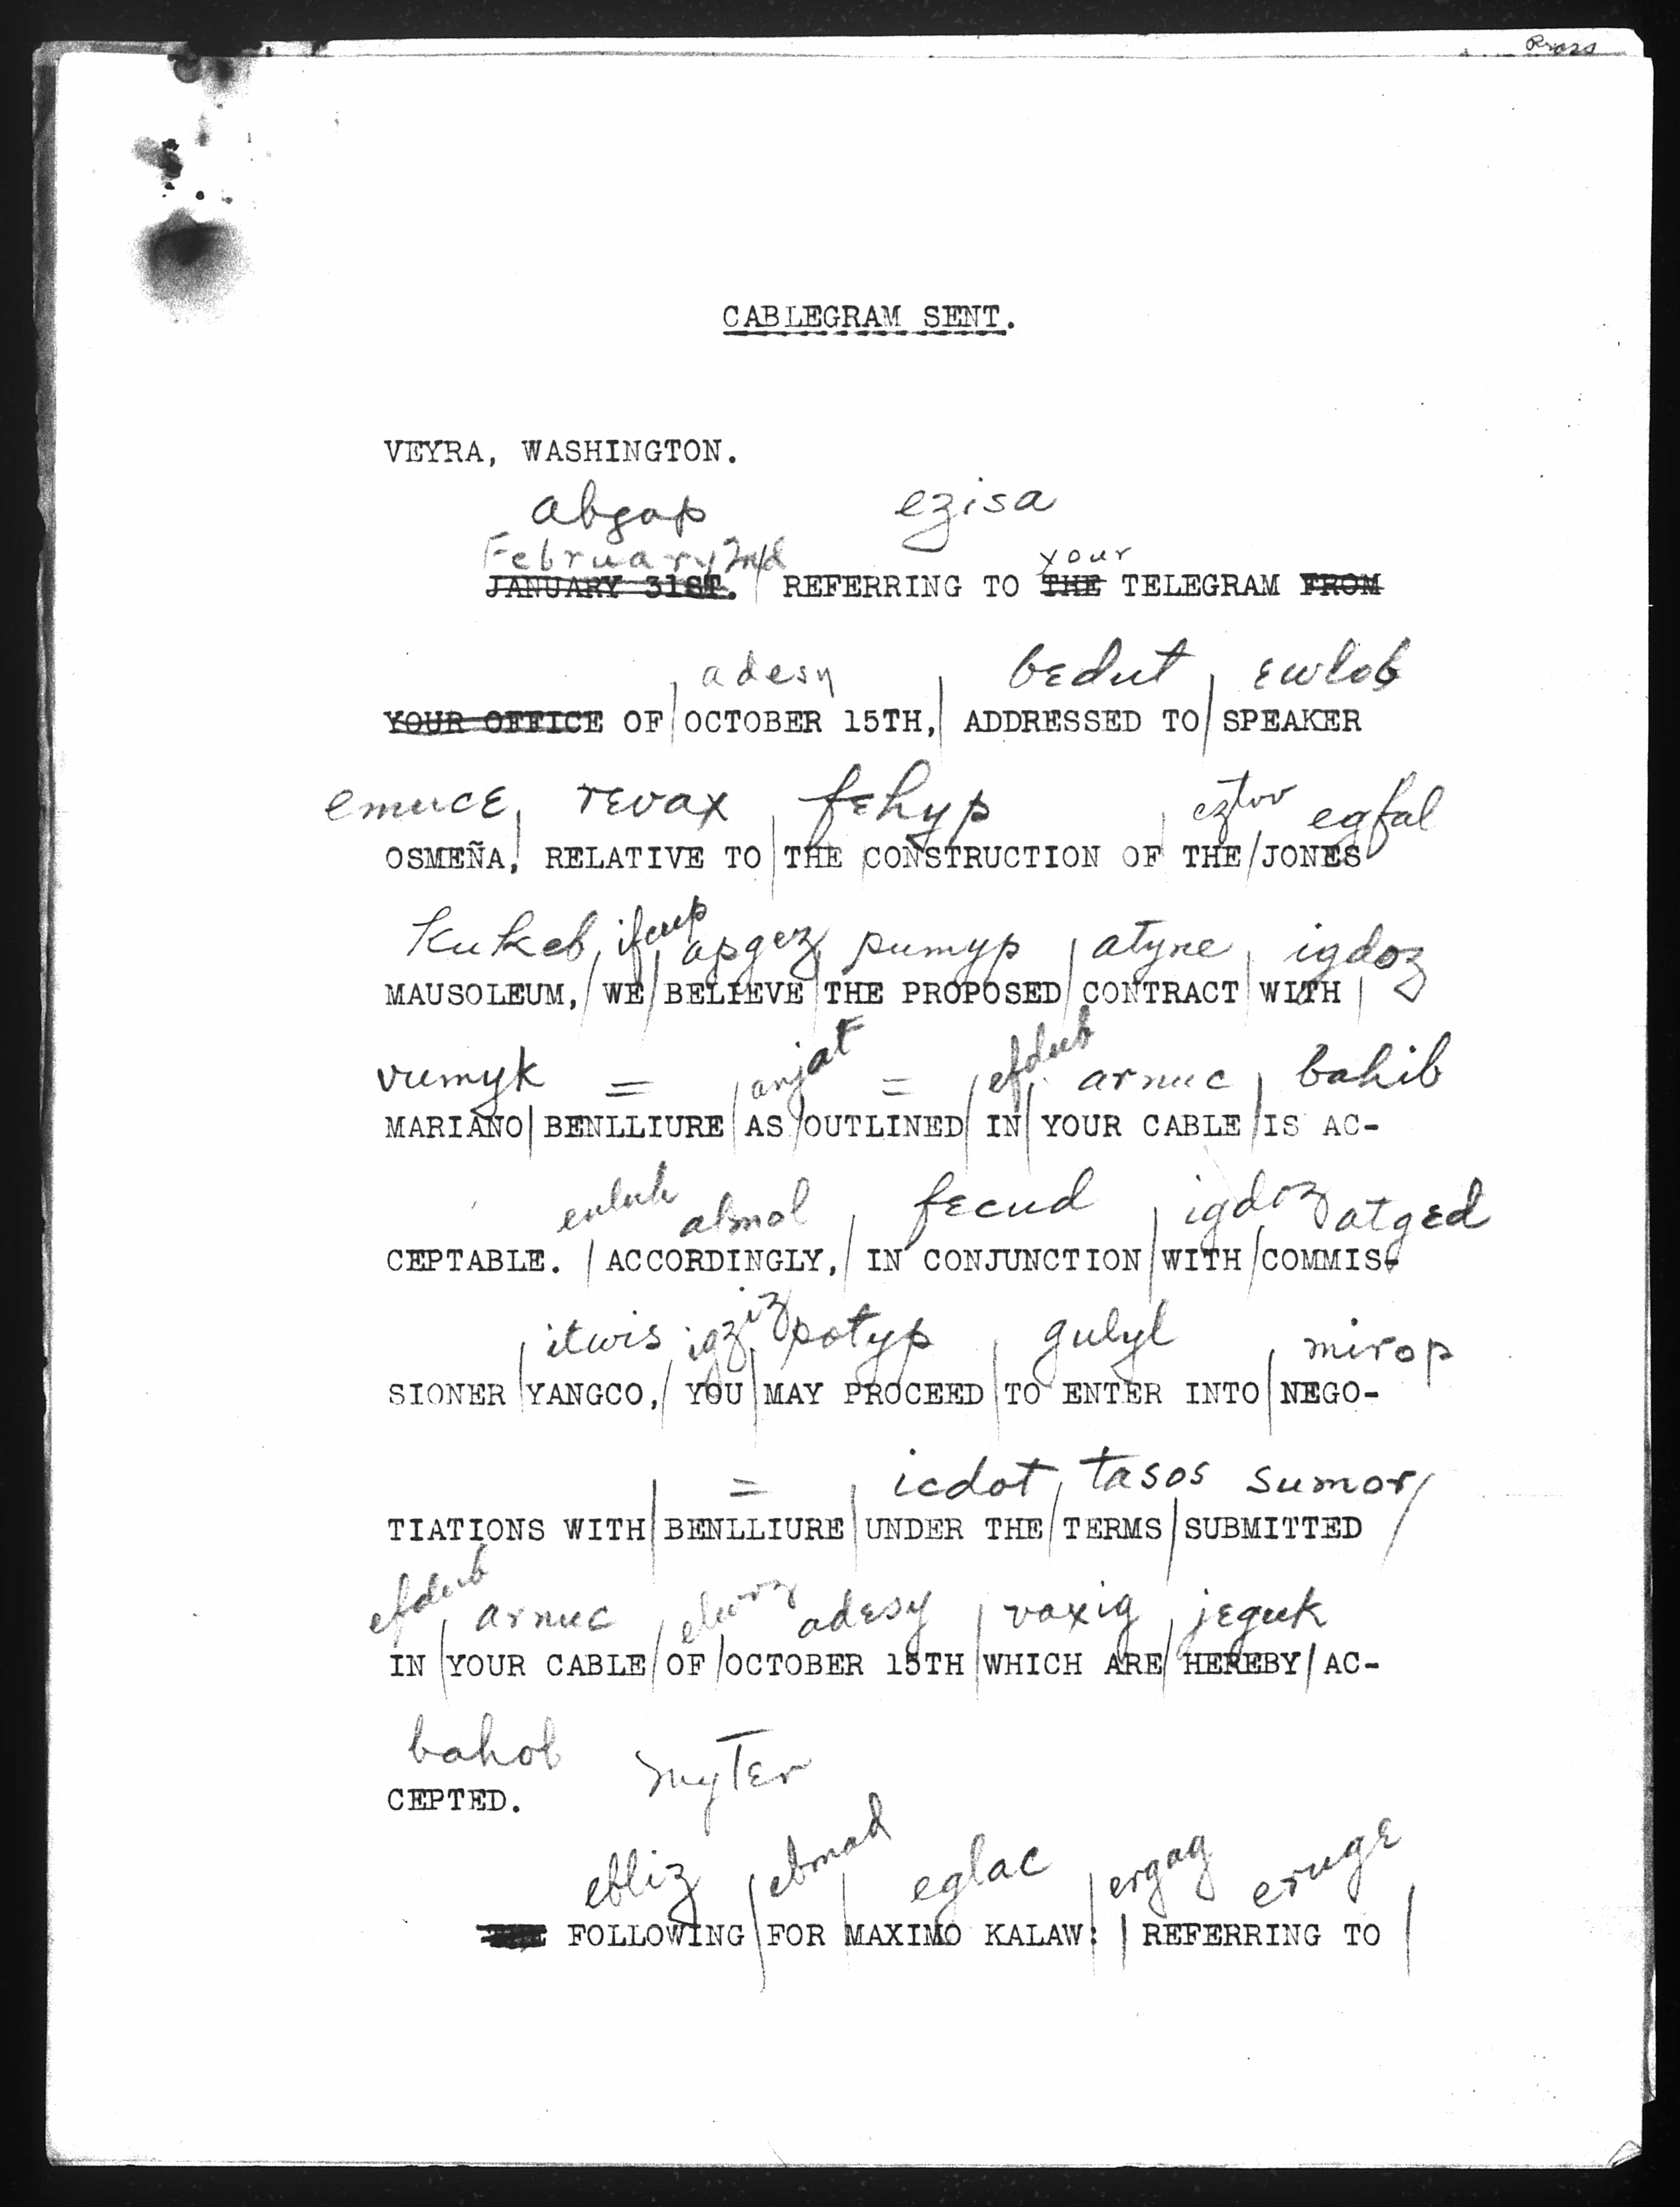 CABLEGRAM SENT.
VEYRA, WASHINGTON.
abgap ezisa
February 2nd your
JANUARY 31ST. REFERRING TO THE TELEGRAM FROM
adesy bedut ewlob
YOUR OFFICE OF OCTOBER 15TH, ADDRESSED TO SPEAKER
emuce revax fehyp eztov egfal
OSMEÑA, RELATIVE TO THE CONSTRUCTION OF THE JONES
kukeb ifcup apgez pumyp atyne igdoz
MAUSOLEUM, WE BELIEVE THE PROPOSED CONTRACT WITH
vumyk = anjat = efdub arnuc bahib
MARIANO BENLLIURE AS OUTLINED IN YOUR CABLE IS AC-
almol fecud igdoz atged
CEPTABLE. ACCORDINGLY, IN CONJUNCTION WITH COMMIS-
itwis igziz potyp gulyl mirop
SIONER YANGCO, YOU MAY PROCEED TO ENTER INTO NEGO-
= icdot tasos sumor
TIATIONS WITH BENLLIURE UNDER THE TERMS SUBMITTED
efdub arnuc adesy vaxig jeguk
IN YOUR CABLE OF OCTOBER 15TH WHICH ARE HEREBY AC-
bahob
CEPTED.
ebliz ebmad eglac ergag eruge
FOLLOWING FOR MAXIMO KALAW: REFERRING TO